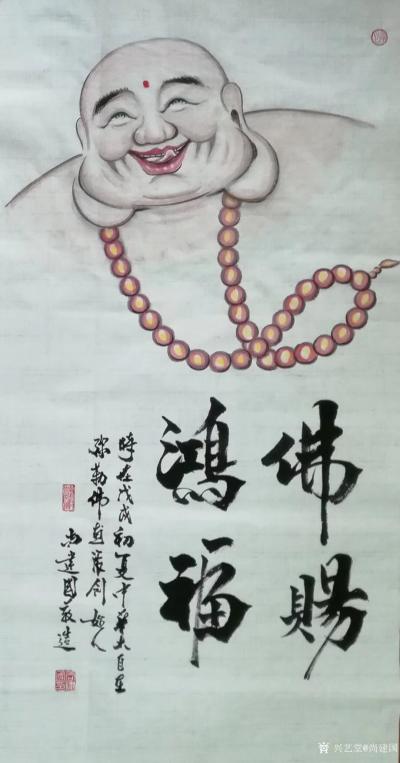 佛赐
鸿福
时在戊戌初夏中華大自在
弥勒佛直笔创始人
尚建国敬造
兴艺堂@尚建国